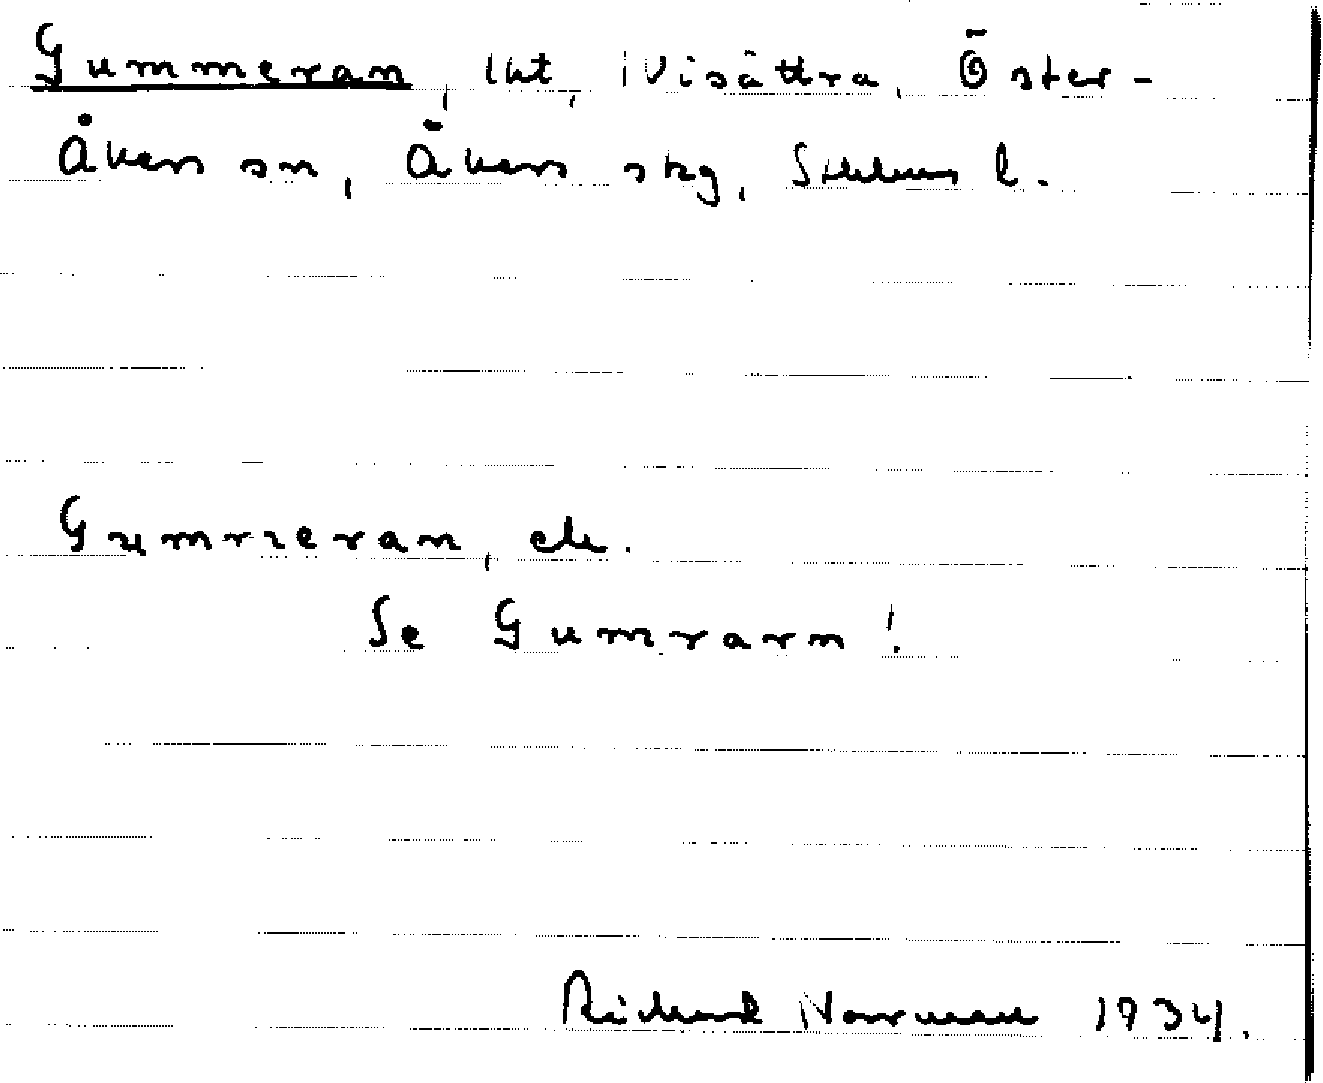 Gummeran, lht, Visättra, Öster-
Åkers sn, Åkers skg, Sthlms l.
Gummeran, etc.
Se Gumrarn!
Richard Norrman 1934.